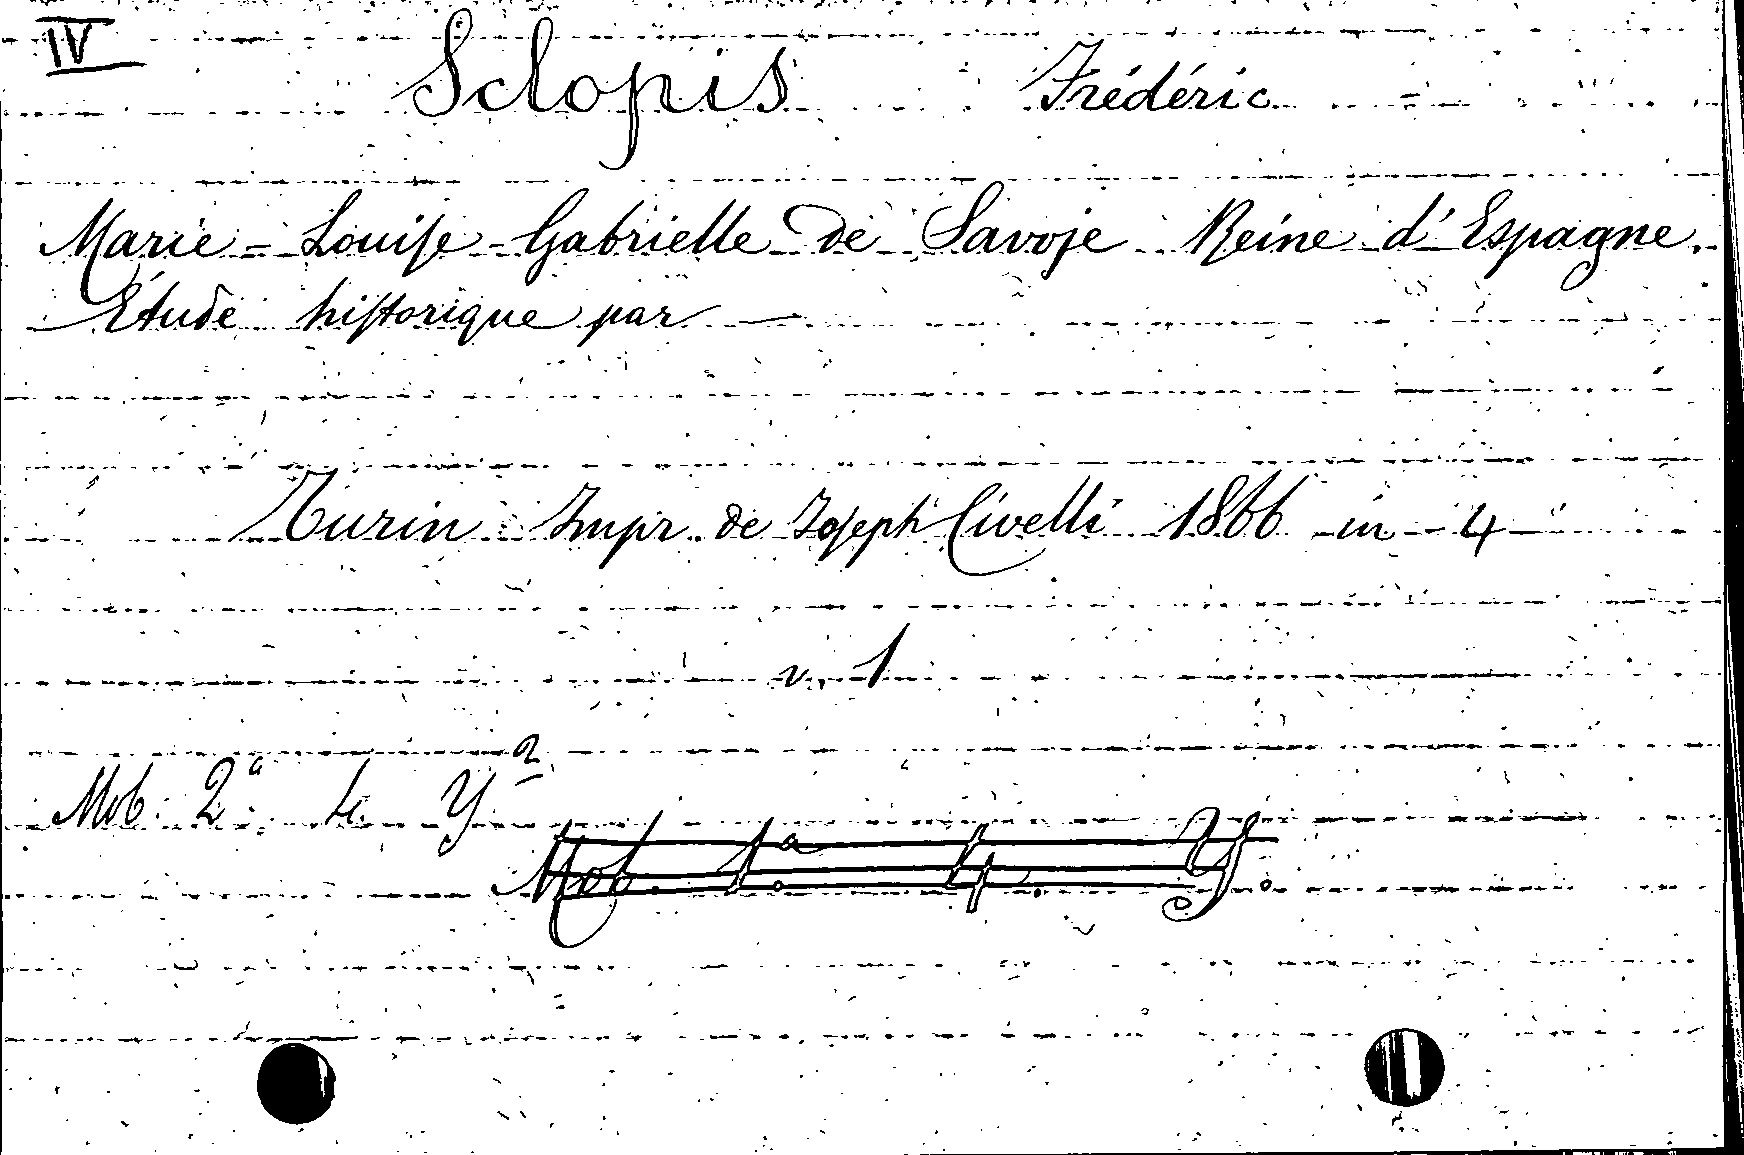 IV
Sclopis Frédéric
Marie-Louise-Gabrielle de Savoje Reine d'Espagne.
Étude historique par —
Turin Impr. de Joseph Civelli 1866 in-4
v. 1
Mob. 2ª. Y 2
Mob. 1.ª 4. Y.